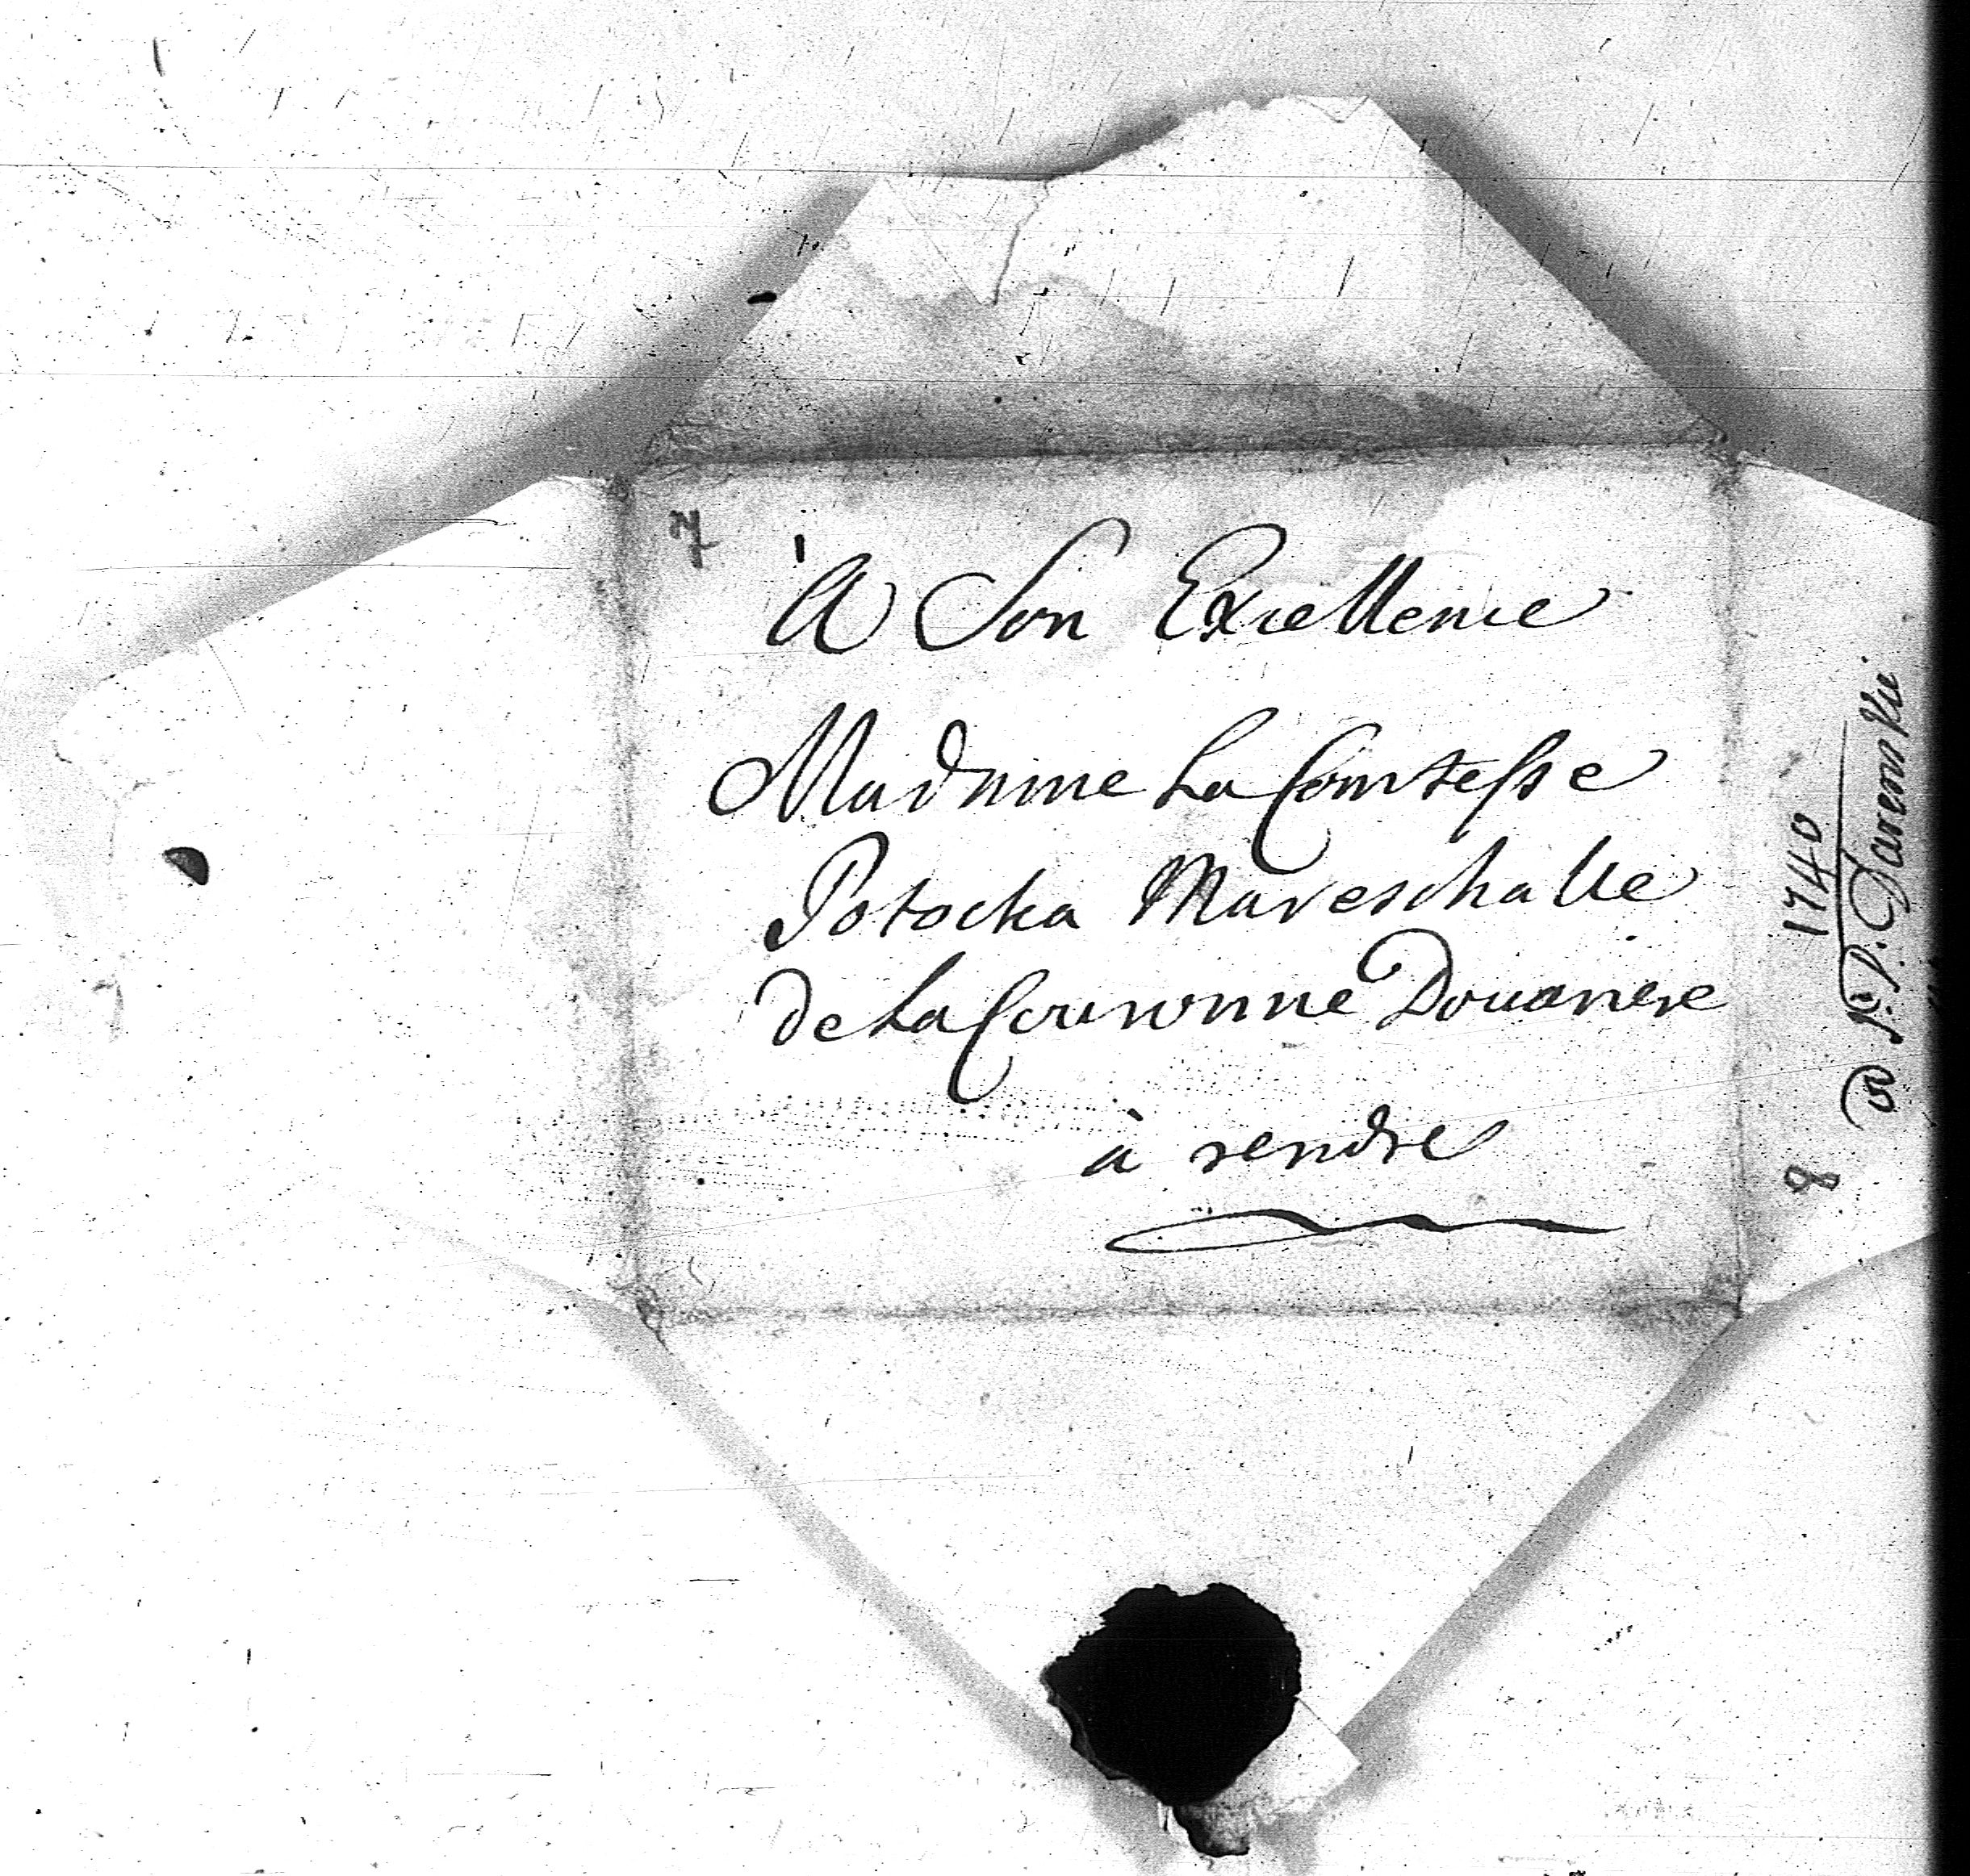 7
À Son Excellence
Madame La Comtesse
Potocka Mareschalle
de La Couronne Douariere
à rendre
1740
P. Daremski
8